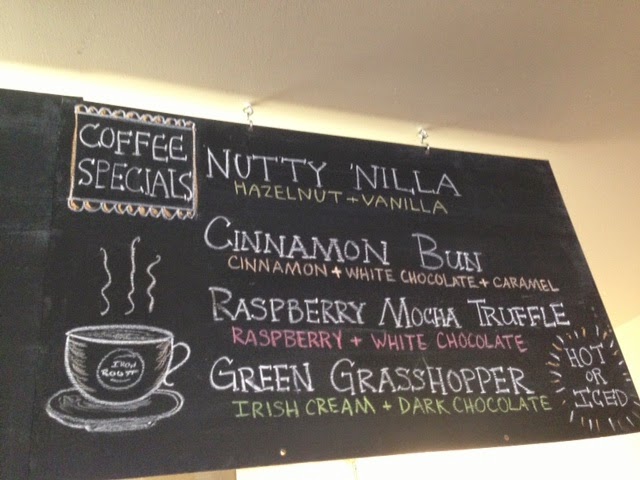 COFFEE
SPECIALS
NUTTY 'NILLA
HAZELNUT + VANILLA
CINNAMON BUN
CINNAMON + WHITE CHOCOLATE + CARAMEL
RASPBERRY MOCHA TRUFFLE
RASPBERRY + WHITE CHOCOLATE
GREEN GRASSHOPPER
IRISH CREAM + DARK CHOCOLATE
HOT
OR
ICED